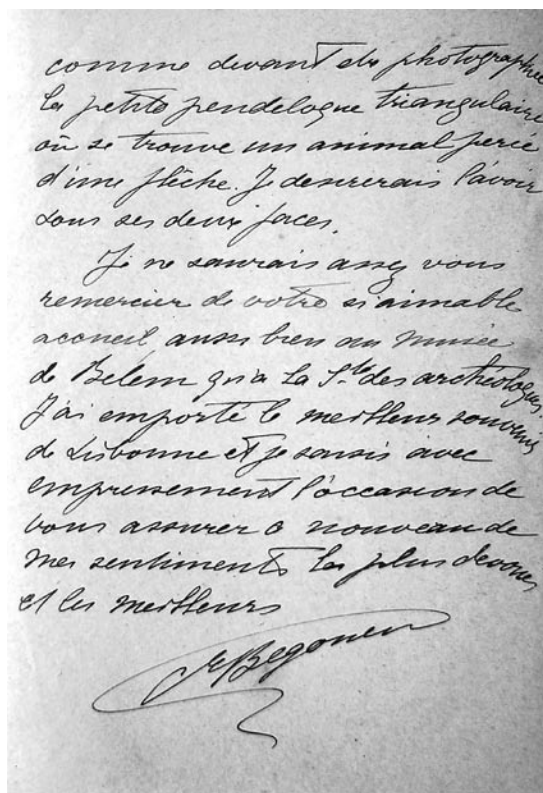 comme devant être photographiée
la petite pendeloque triangulaire
où se trouve un animal percé
d'une flèche. Je desirerais l'avoir
sous ses deux faces.
Je ne saurais assez vous
remercier de votre si aimable
accueil aussi bien au Musée
de Belem qu'à la Sté des archéologues.
J'ai emporté le meilleur souvenir
de Lisbonne et je saisis avec
empressement l'occasion de
vous assurer à nouveau de
mes sentiments les plus devoués
et les meilleurs
Begouen